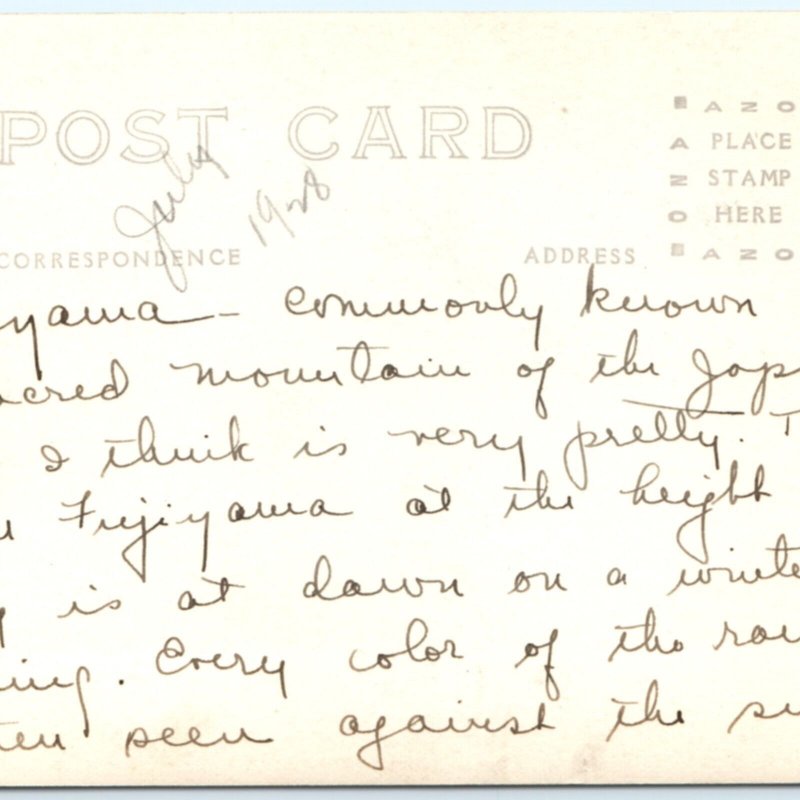 POST CARD
AZO
A PLACE
N STAMP
O HERE
AZO
July 1928
CORRESPONDENCE
ADDRESS
yama – commonly known
acred mountain of the Jap
I think is very pretty. T
Fujiyama at the height
is at dawn on a winte
ing. Every color of the rai
ten seen against the s